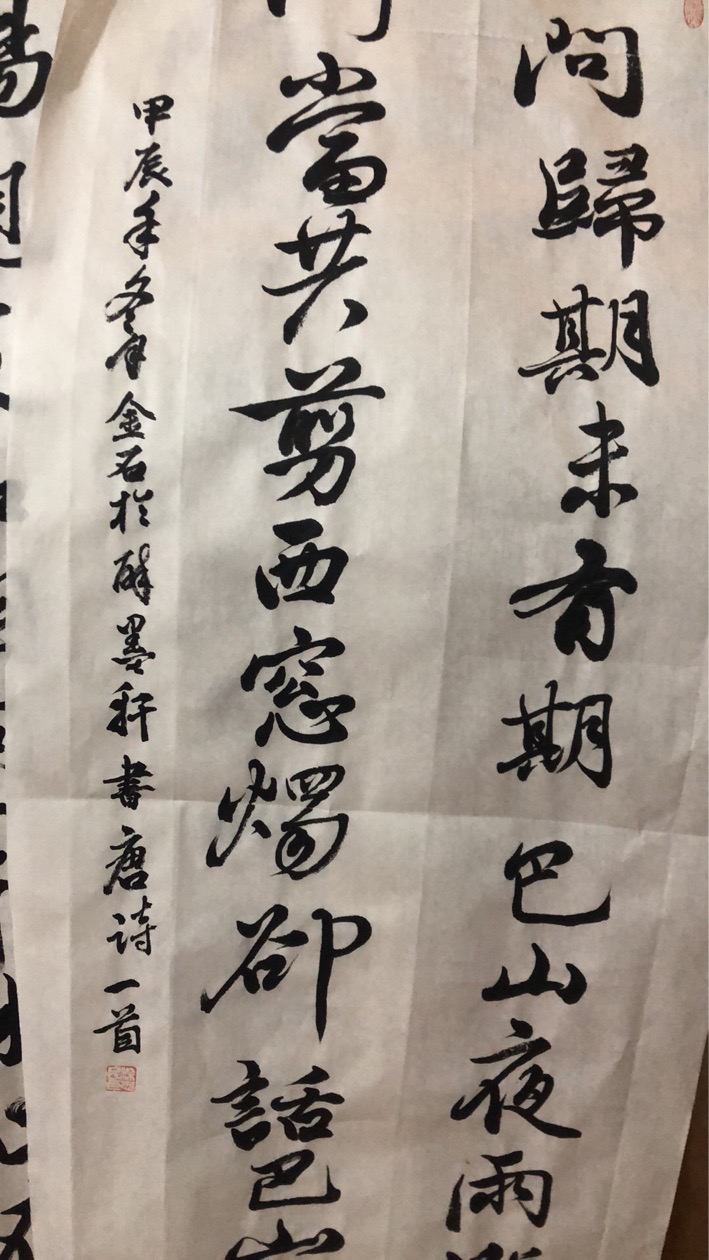 問歸期未有期巴山夜雨
當共剪西窓燭卻話巴山
甲辰年冬月金石於醉墨軒書唐詩一首